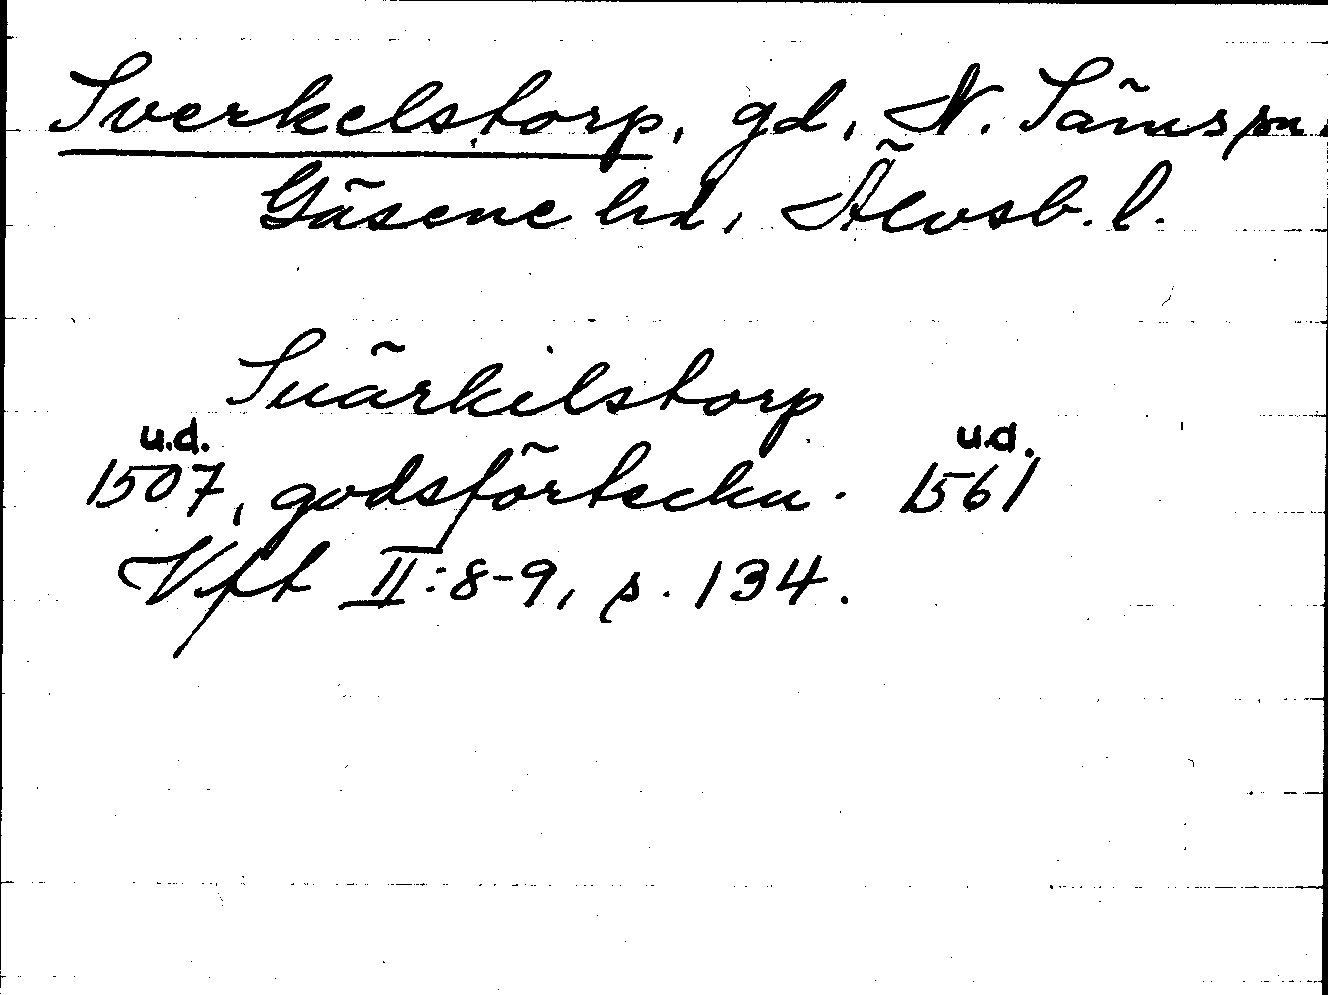 Sverkelstorp, gd, N. Säms sn.
Gäsene hd, Älvsb. l.
Suärkilstorp
u.d. u.d.
1507, godsförteckn. 1561
Vft II:8-9, s. 134.